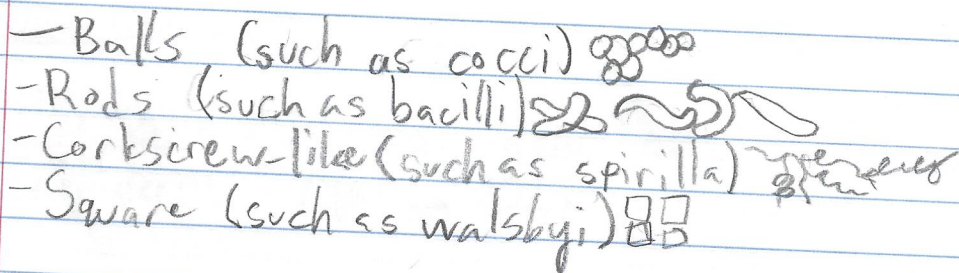 - Balls (such as cocci)
- Rods (such as bacilli)
- Corkscrew-like (such as spirilla)
- Square (such as walsbyi)